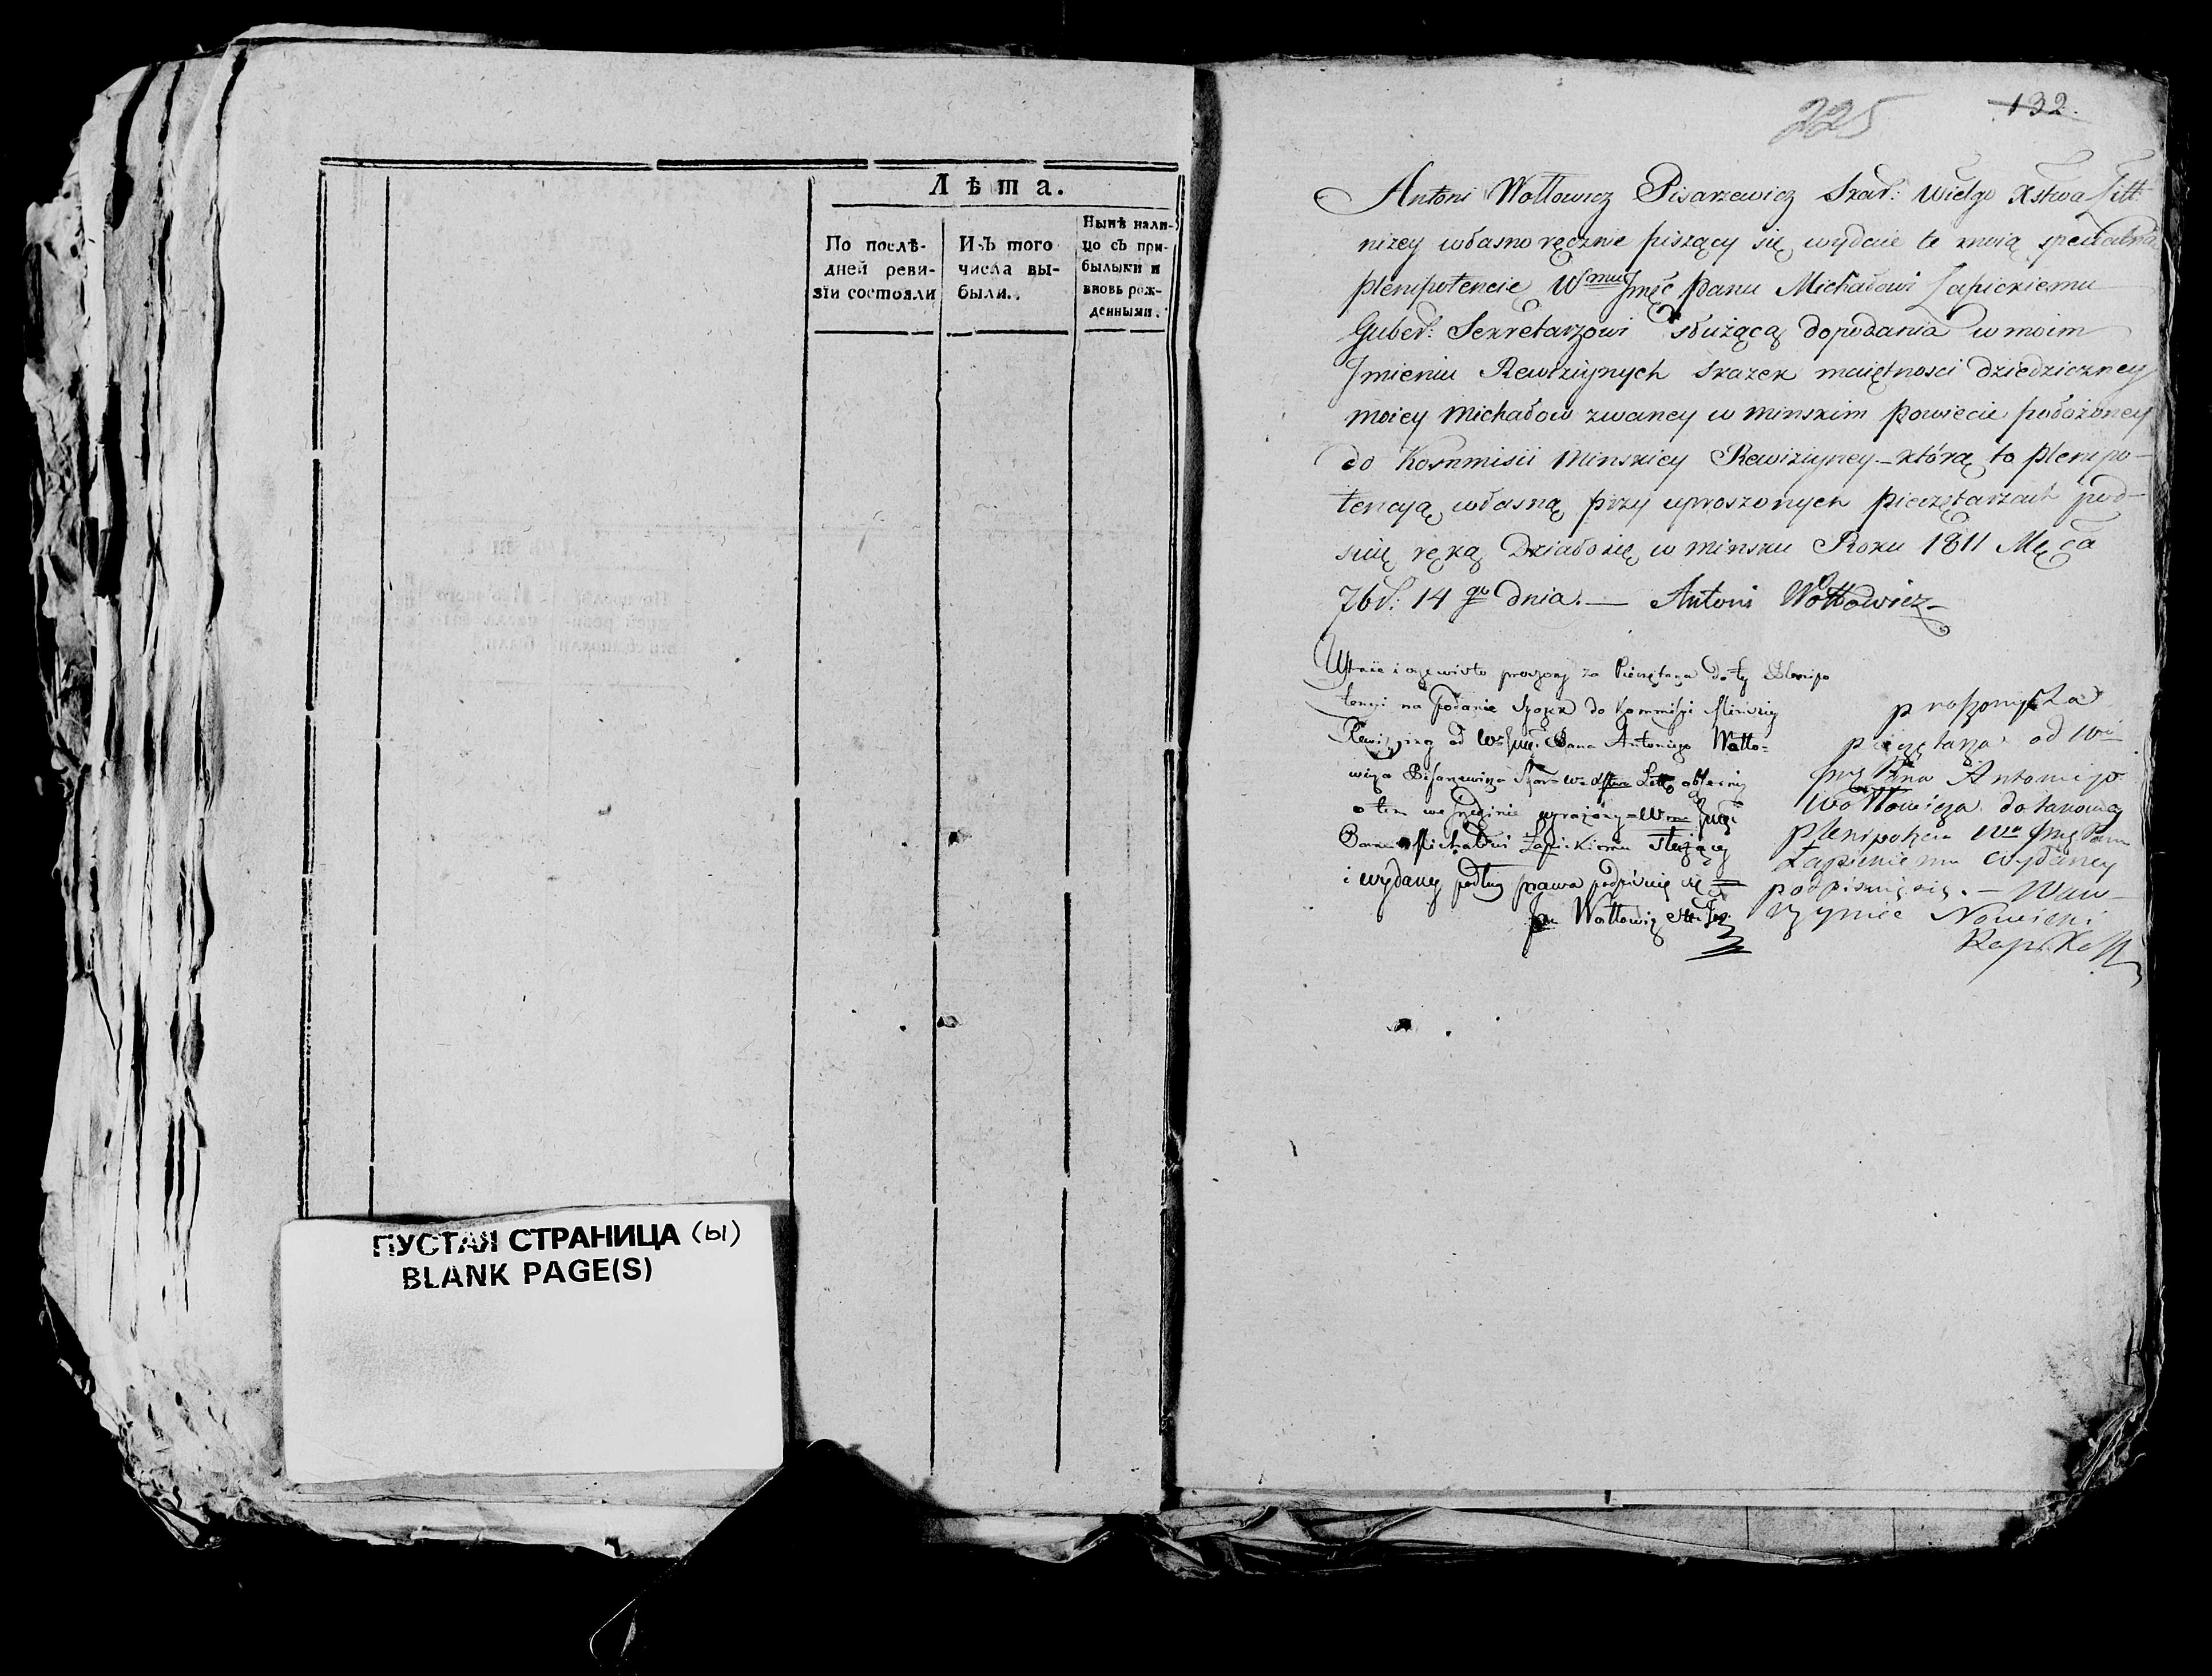 Лѣта.
По послѣ-
дней реви-
зїи состояли
Изъ того
числа вы-
были.
Нынѣ нали-
цо съ при-
былыми и
вновь рож-
денными.
ПУСТАЯ СТРАНИЦА (ы)
BLANK PAGE(S)
225
132.
Antoni Wołłowicz Pisarzewicz Skar: Wielgo Xstwa Litt:
niżey własno ręcznie piszący się wydaie te moią specialną
plenipotencie Wmu Jmść Panu Michałowi Łapickiemu
Guber: Sekretarzowi służącą do podania w moim
Jmieniu Rewiziynych skazek maiętnosci dziedziczney
moiey Michałow zwaney w minskim powiecie położoney
do Kommisii Minskiey Rewiziyney - którą to plenipo-
tencyą własną przy uproszonych pieczętarzach pod-
suię ręką Działo się w minsku Roku 1811 Męca
7br: 14 go dnia. — Antoni Wołłowicz
Ustnie i oczewisto proszony za Pieczętarza do tey Plenipo
tencyi na Podanie Skazek do Kommisyi Minskiey
od Pana Antoniego Wołło=
wicza
o tem we
Panu Michałowi Łapickiemu służącey
i wydaney podług prawa podpisuię się
Wołłowicz
proszony za
pieczętarza od
Pana Antoniego
Wołłowicza do takowey
Plenipotencyi
Łapickiemu wydaney
podpisuię się. — Waw-
rzyniec Nowicki